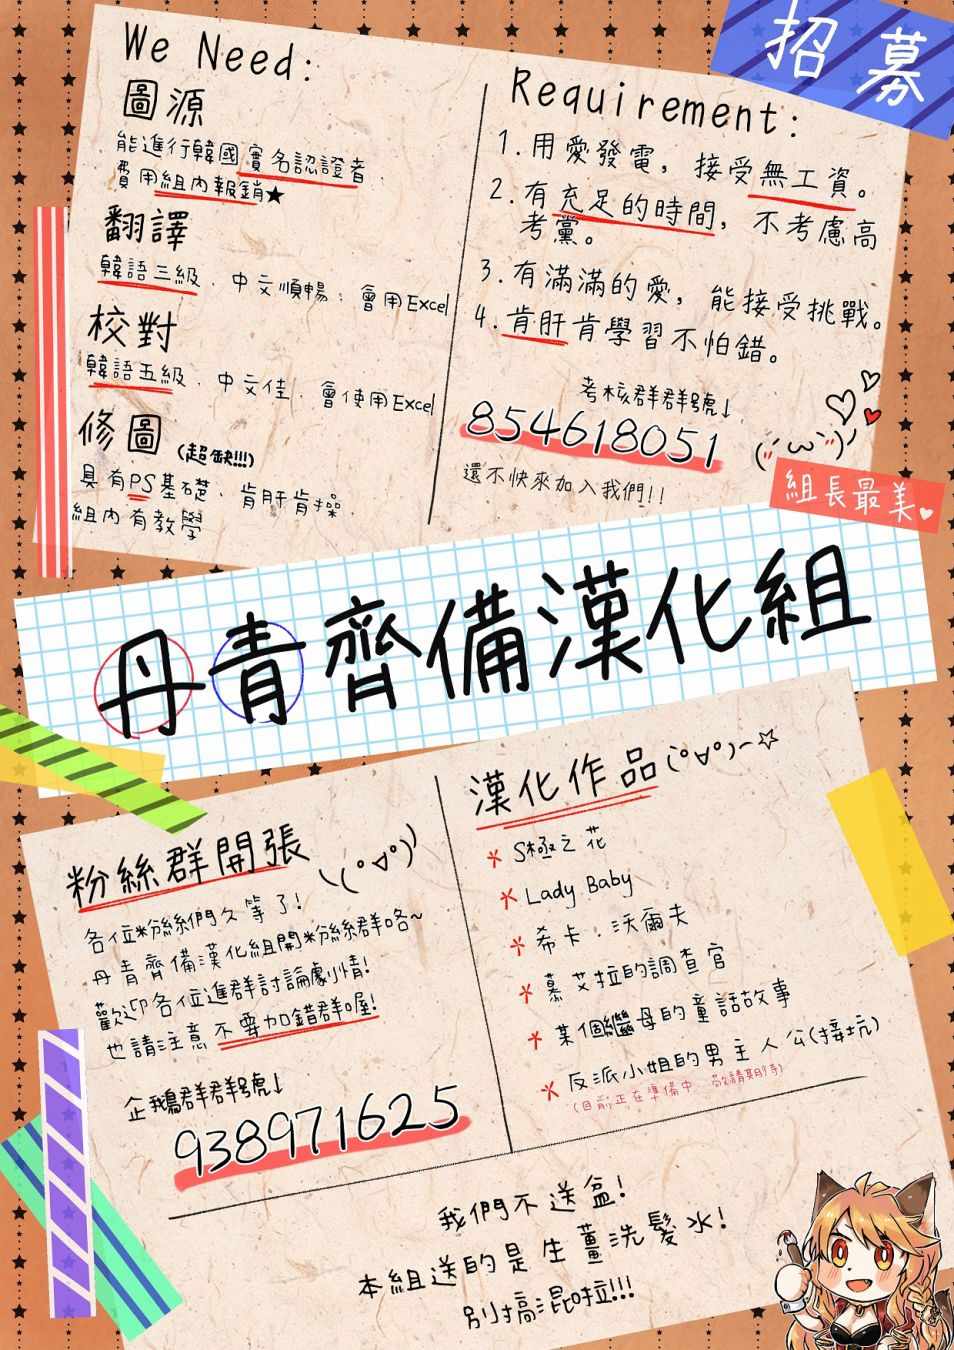 招募
We Need:
圖源
能進行韓國實名認證者.
費用組內報銷★
翻譯
韓語三級、中文順暢、會用Excel
校對
韓語五級、中文佳、會使用Excel
修圖(超缺!!!)
具有PS基礎、肯肝肯操
組內有教學
Requirement:
1.用愛發電，接受無工資。
2.有充足的時間，不考慮高
考黨。
3.有滿滿的愛，能接受挑戰。
4.肯肝肯學習不怕錯。
考核群群號↓
854618051
還不快來加入我們!!
組長最美
丹青齊備漢化組
粉絲群開張
各位粉絲們久等了!
丹青齊備漢化組開粉絲群咯~
歡迎各位進群討論劇情!
也請注意不要加錯群喔!
企鵝群群號↓
938971625
漢化作品(°∀°)~☆
S極之花
Lady Baby
希卡·沃爾夫
慕艾拉的調查官
某個繼母的童話故事
反派小姐的男主人公(接坑)
(目前正在準備中 敬請期待)
我們不送盒!
本組送的是生薑洗髮水!
別搞混啦!!!